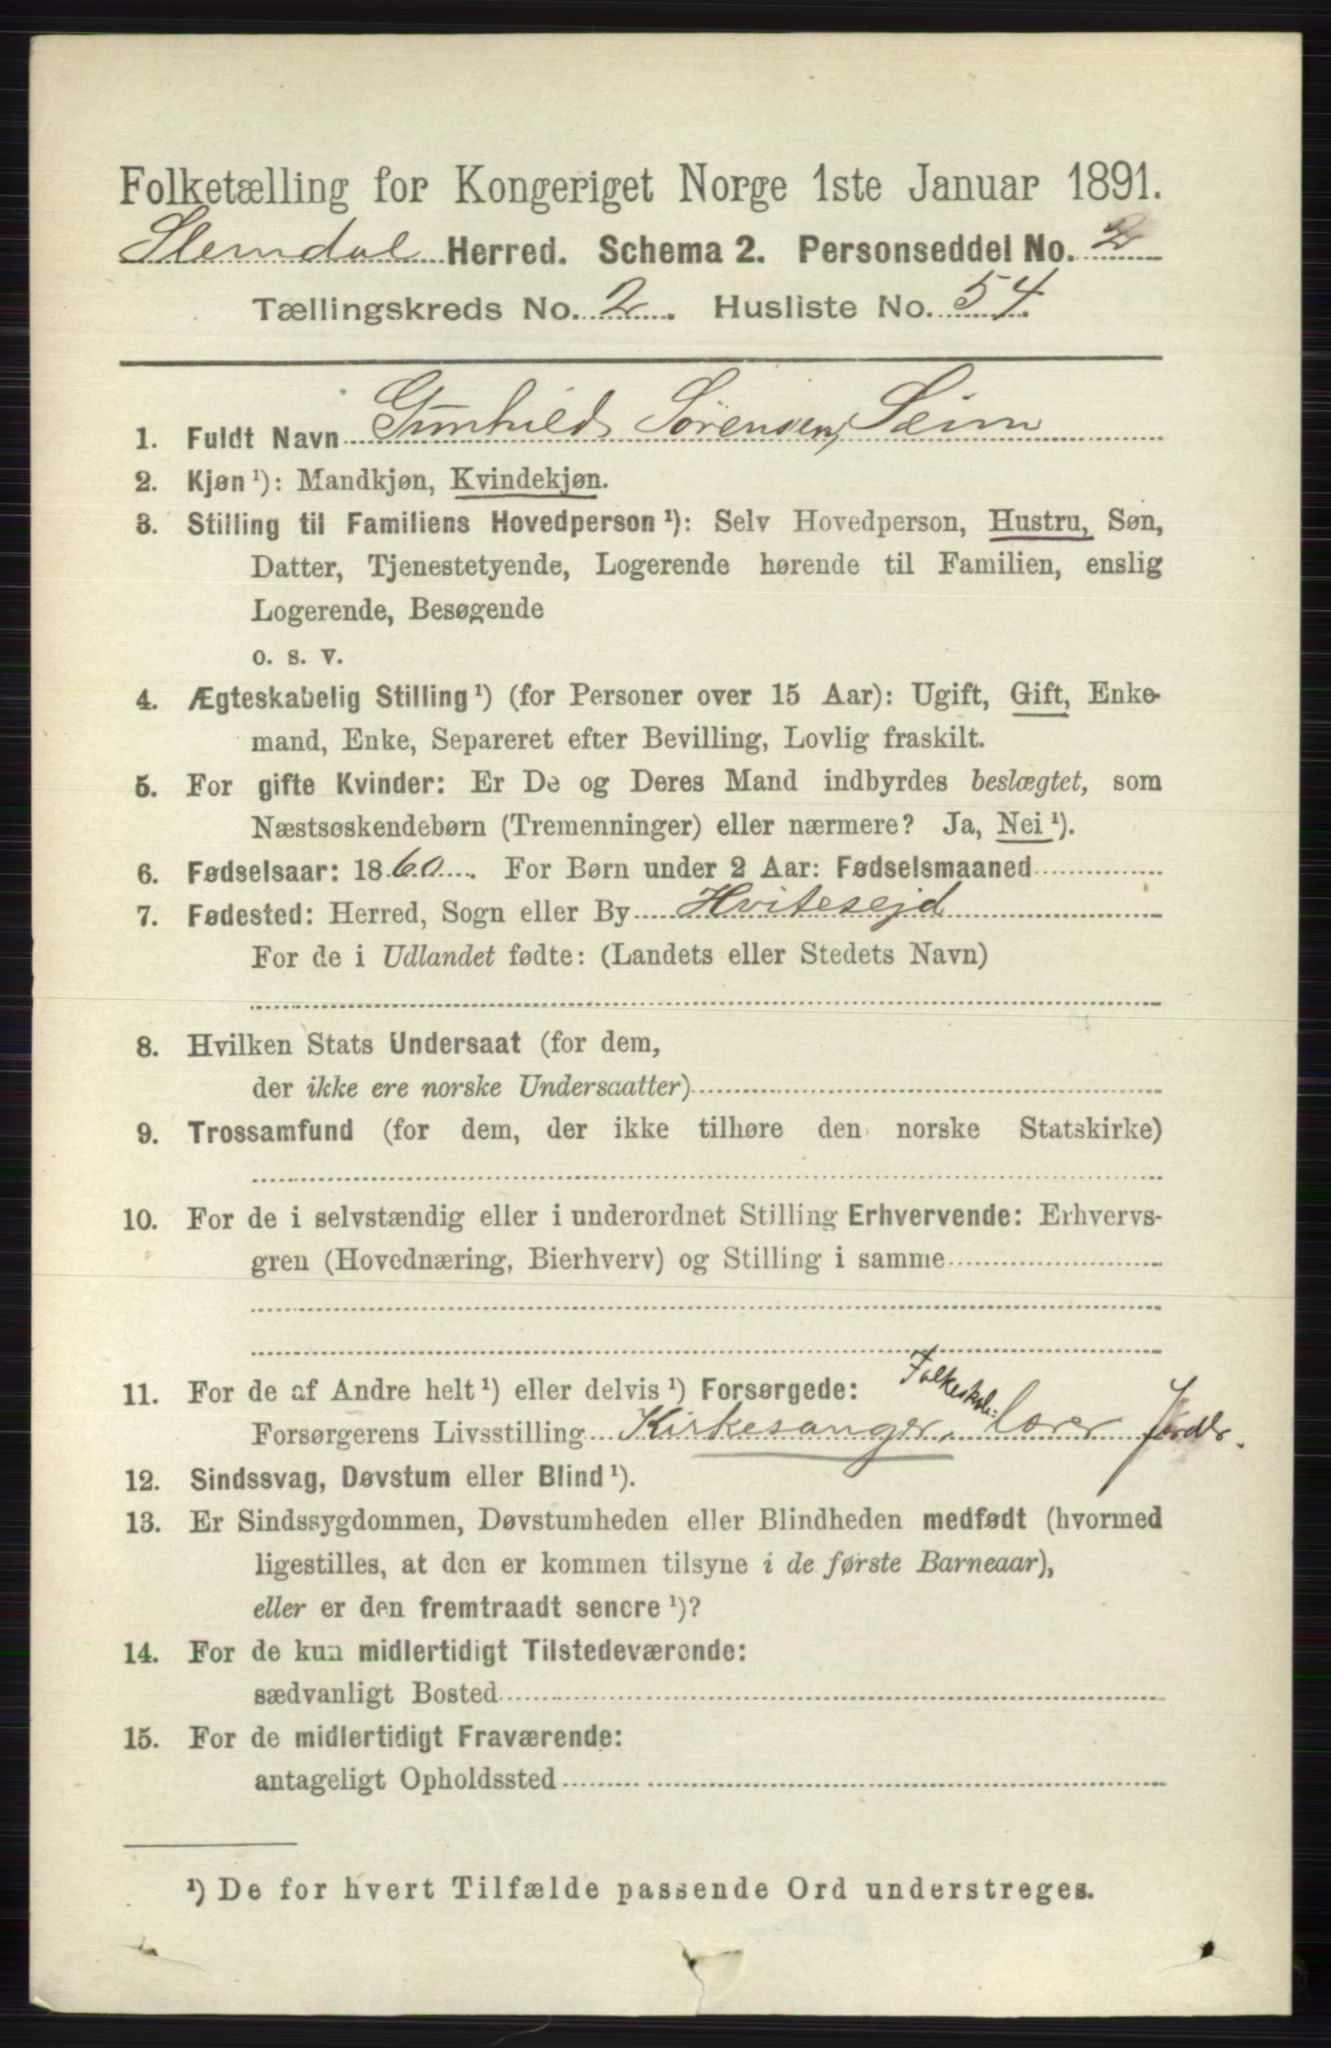 Folketælling for Kongeriget Norge 1ste Januar 1891.
Slemdal Herred. Schema 2. Personseddel No. 2
Tællingskreds No. 2. Husliste No. 54.
1. Fuldt Navn Gunhild Sørensen, Seim
2. Kjøn ¹): Mandkjøn, Kvindekjøn.
3. Stilling til Familiens Hovedperson ¹): Selv Hovedperson, Hustru, Søn,
Datter, Tjenestetyende, Logerende hørende til Familien, enslig
Logerende, Besøgende
o. s. v.
4. Ægteskabelig Stilling ¹) (for Personer over 15 Aar): Ugift, Gift, Enke-
mand, Enke, Separeret efter Bevilling, Lovlig fraskilt.
5. For gifte Kvinder: Er De og Deres Mand indbyrdes beslægtet, som
Næstsøskendebørn (Tremenninger) eller nærmere? Ja, Nei ¹).
6. Fødselsaar: 1860. For Børn under 2 Aar: Fødselsmaaned
7. Fødested: Herred, Sogn eller By Hvitesejd
For de i Udlandet fødte: (Landets eller Stedets Navn)
8. Hvilken Stats Undersaat (for dem,
der ikke ere norske Undersaatter)
9. Trossamfund (for dem, der ikke tilhøre den norske Statskirke)
10. For de i selvstændig eller i underordnet Stilling Erhvervende: Erhvervs-
gren (Hovednæring, Bierhverv) og Stilling i samme
11. For de af Andre helt ¹) eller delvis ¹) Forsørgede: Folkeskole-
Forsørgerens Livsstilling Kirkesanger, lærer
12. Sindssvag, Døvstum eller Blind ¹).
13. Er Sindssygdommen, Døvstumheden eller Blindheden medfødt (hvormed
ligestilles, at den er kommen tilsyne i de første Barneaar),
eller er den fremtraadt senere ¹)?
14. For de kun midlertidigt Tilstedeværende:
sædvanligt Bosted
15. For de midlertidigt Fraværende:
antageligt Opholdssted
¹) De for hvert Tilfælde passende Ord understreges.